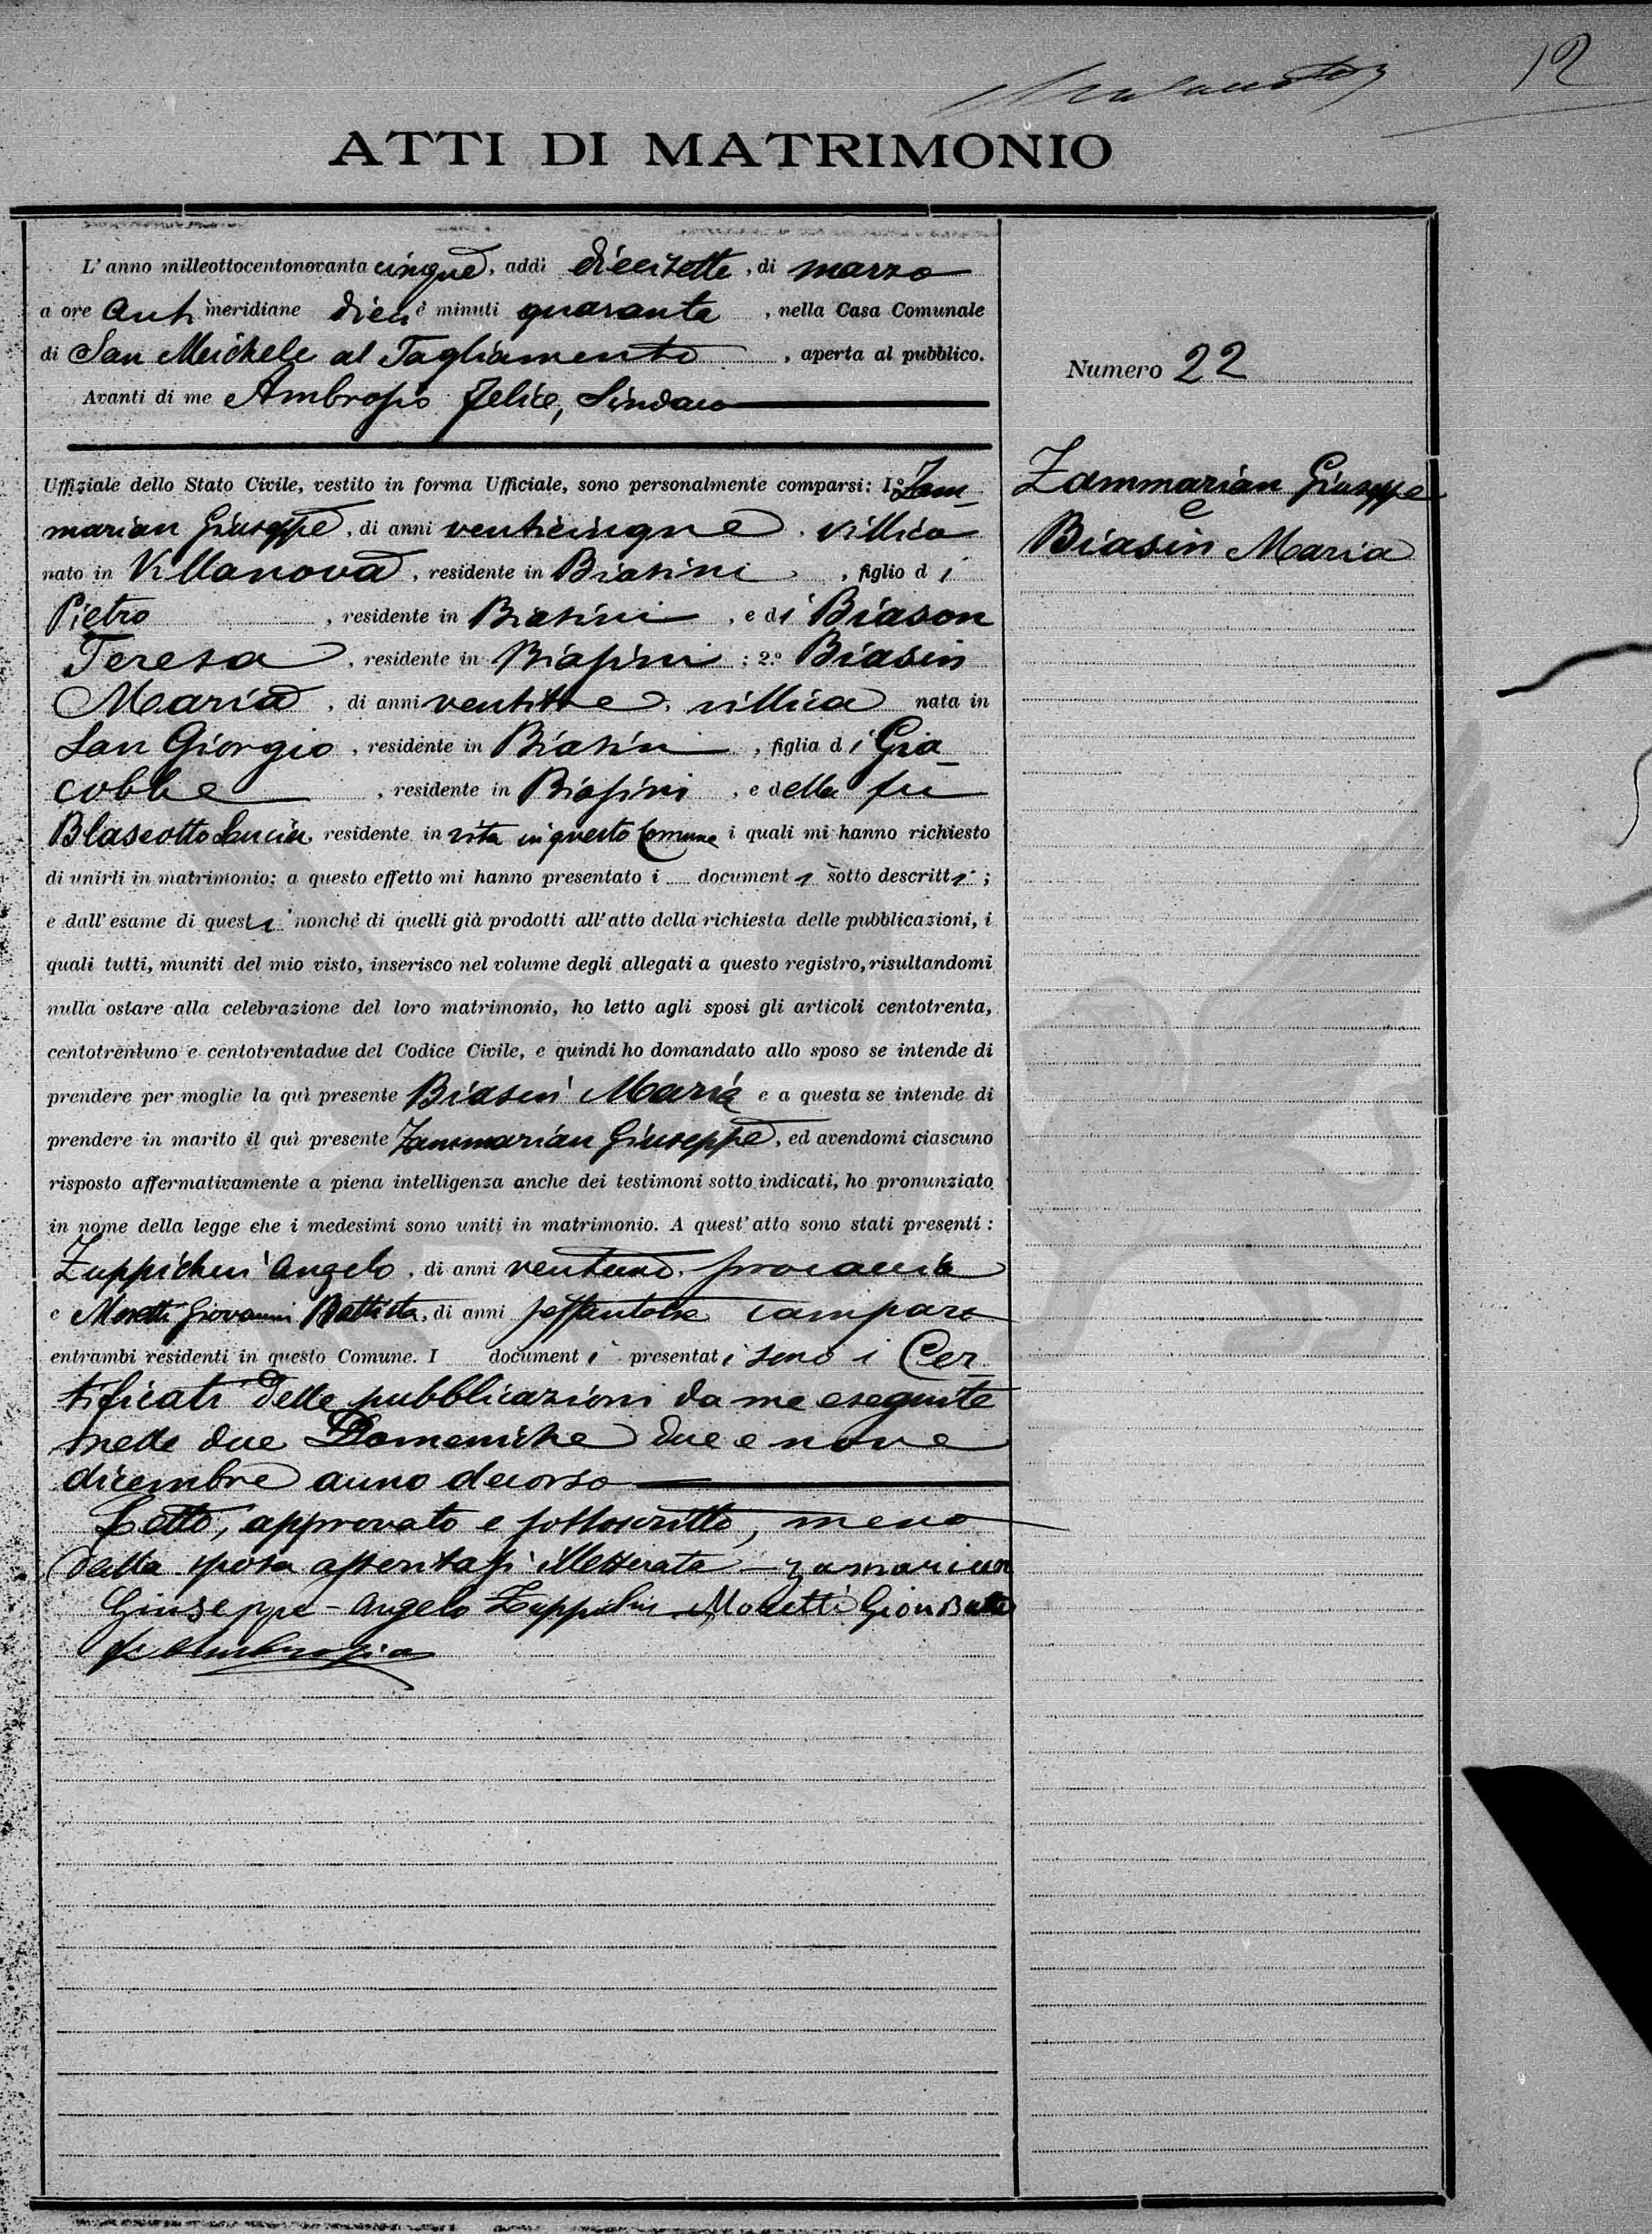 12
ATTI DI MATRIMONIO
L'anno milleottocentonovanta cinque, addì diecisette, di marzo
a ore Ant meridiane dieci e minuti quaranta, nella Casa Comunale
di San Meichele al Tagliamento, aperta al pubblico.
Avanti di me Ambrosio Felice, Sindaco
Numero 22
Uffiziale dello Stato Civile, vestito in forma Ufficiale, sono personalmente comparsi: 1° Zam-
marian Giuseppe, di anni venticinque, villico
nato in Villanova, residente in Biasini, figlio di
Pietro, residente in Biasini, e di Biason
Teresa, residente in Biasini; 2.° Biasin
Maria, di anni ventitre, villica nata in
San Giorgio, residente in Biasini, figlia di Gia-
cobbe, residente in Biasini, e della fu
Blaseotto Lucia residente in vita in questo Comune i quali mi hanno richiesto
di unirli in matrimonio; a questo effetto mi hanno presentato i documenti sotto descritti;
e dall'esame di questi nonchè di quelli già prodotti all'atto della richiesta delle pubblicazioni, i
quali tutti, muniti del mio visto, inserisco nel volume degli allegati a questo registro, risultandomi
nulla ostare alla celebrazione del loro matrimonio, ho letto agli sposi gli articoli centotrenta,
centotrentuno e centotrentadue del Codice Civile, e quindi ho domandato allo sposo se intende di
prendere per moglie la quì presente Biasin Maria e a questa se intende di
prendere in marito il quì presente Zammarian Giuseppe, ed avendomi ciascuno
risposto affermativamente a piena intelligenza anche dei testimoni sotto indicati, ho pronunziato
in nome della legge che i medesimi sono uniti in matrimonio. A quest'atto sono stati presenti:
Zuppichin Angelo, di anni ventuno, procaccia
e Moretti Giovanni Battista, di anni sessantotre camparo
entrambi residenti in questo Comune. I documenti presentati sono i Cer-
tificati delle pubblicazioni da me eseguite
nelle due Domeniche due e nove
dicembre anno decorso
Letto, approvato e sottoscritto, meno
dalla sposa assentasi illetterata – zamarian
Giuseppe – Angelo Zuppichin Moretti Giov Batta
F Ambrosio
Zammarian Giuseppe
e
Biasin Maria